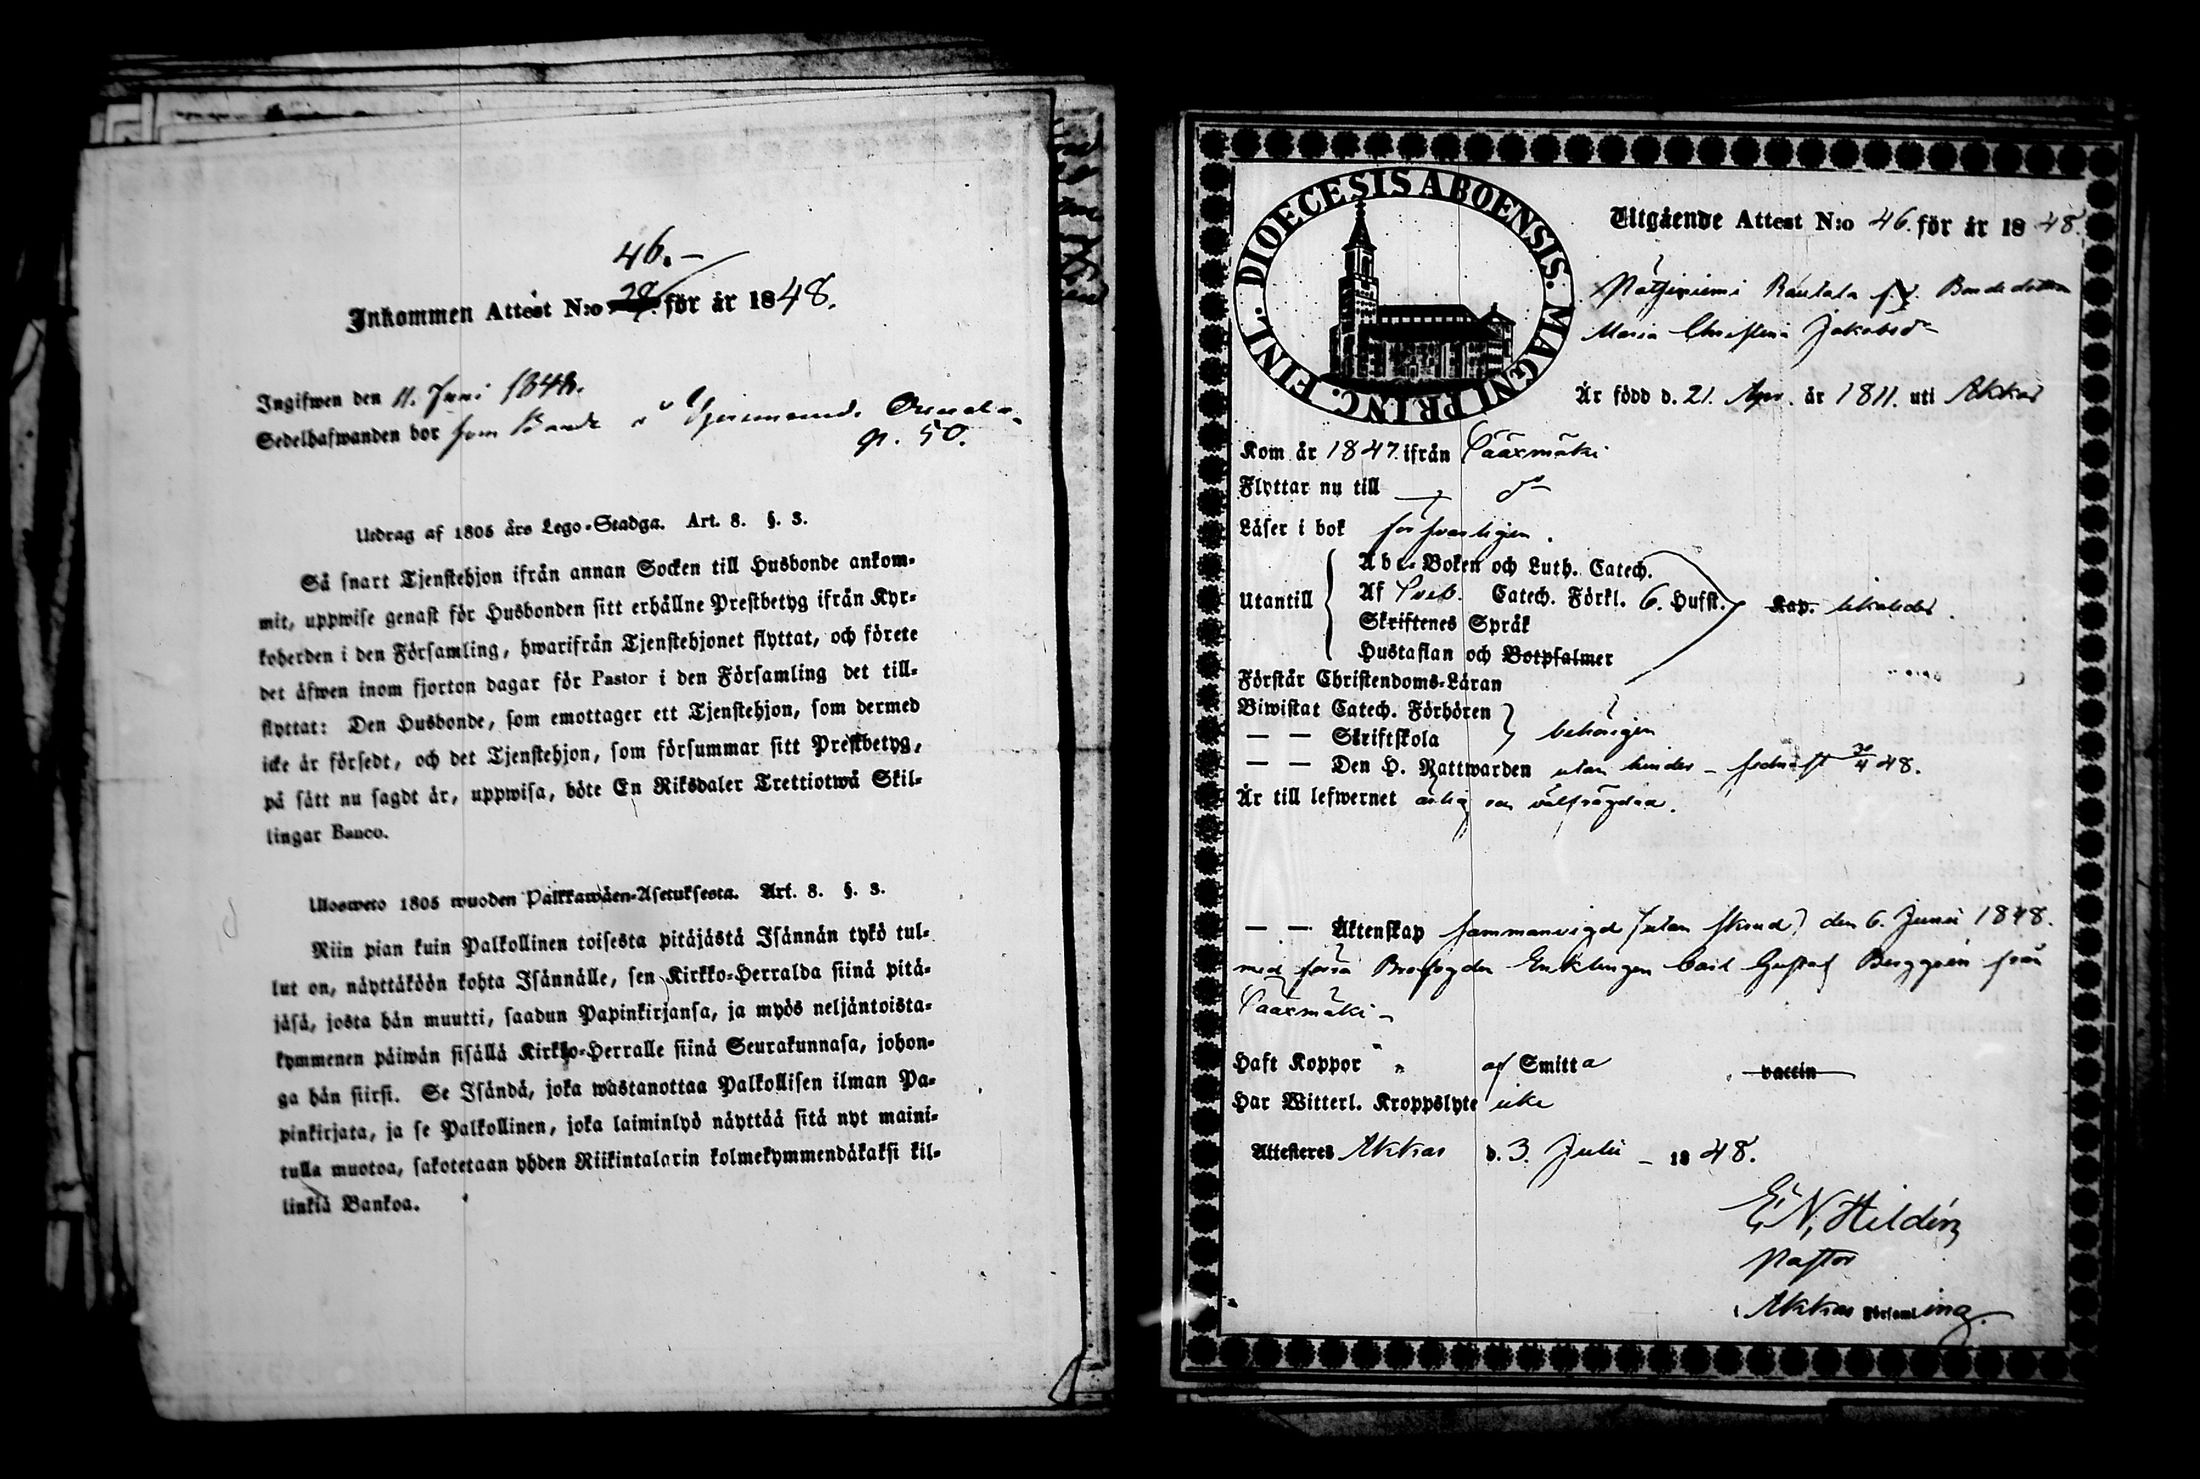 46.-
Inkommen Attest N:o 28. för år 1848.
Ingifwen den 11. Juni 1848.
Sedelhafwanden bor som
p. 50.
Utdrag af 1805 års Lego-Stadga. Art. 8. §. 3.
Så snart Tjenstehjon ifrån annan Socken till Husbonde ankom-
mit, uppwise genast för Husbonden sitt erhållne Prestbetyg ifrån Kyr-
koherden i den Församling, hwarifrån Tjenstehjonet flyttat, och förete
det äfwen inom fjorton dagar för Pastor i den Församling det till-
flyttat: Den Husbonde, som emottager ett Tjenstehjon, som dermed
icke är försedt, och det Tjenstehjon, som försummar sitt Prestbetyg,
på sätt nu sagdt är, uppwisa, böte En Riksdaler Trettiotwå Skil-
lingar Banco.
Ulosweto 1805 wuoden Palkkawäen-Asetuksesta. Art. 8. §. 3.
Niin pian kuin Palkollinen toisesta pitäjästä Isännän tykö tul-
lut on, näyttäköön kohta Isännälle, sen Kirkko-Herralda siinä pitä-
jäsä, josta hän muutti, saadun Papinkirjansa, ja myös neljäntoista-
kymmenen päiwän sisällä Kirkko-Herralle siinä Seurakunnasa, johon-
ga hän siirsi. Se Isändä, joka wastanottaa Palkollisen ilman Pa-
pinkirjata, ja se Palkollinen, joka laiminlyö näyttää sitä nyt maini-
tulla muotoa, sakotetaan yhden Riikintalarin kolmekymmendäkaksi kil-
linkiä Bankoa.
DIOECESIS ABOENSIS. MAGNI PRINC. FINL.
Utgående Attest N:o 46. för år 1848.
Rautala f.d. Bondedottren
Maria Christina Jakobsdr
Är född d. 21. Apr. år 1811. uti Akkas
Kom år 1847 ifrån Sääxmäki
Flyttar nu till do
Läser i bok försvarligen.
Utantill
Abc-Boken och Luth. Catech.
Af Sveb. Catech. Förkl. 6. Hufst. Kap.
Skriftenes Språk
Hustaflan och Botpsalmer
Förstår Christendoms-Läran
Biwistat Catech. Förhören
— — Skriftskola behörigen
— — Den H. Nattwarden utan hinder - sednast 30/4 48.
Är till lefwernet ärlig och välfrägdad.
— — Äktenskap sammanvigd (utan skrud) den 6. Junii 1848.
med förra Brofogden Enklingen Carl Gustaf Berggrén från
Sääxmäki -
Haft Koppor " af Smitta vaccin
Har Witterl. Kroppslyte icke
Attesteras Akkas d. 3. Julii - 1848.
E. N. Hildén
Pastor
i Akkas Församling.